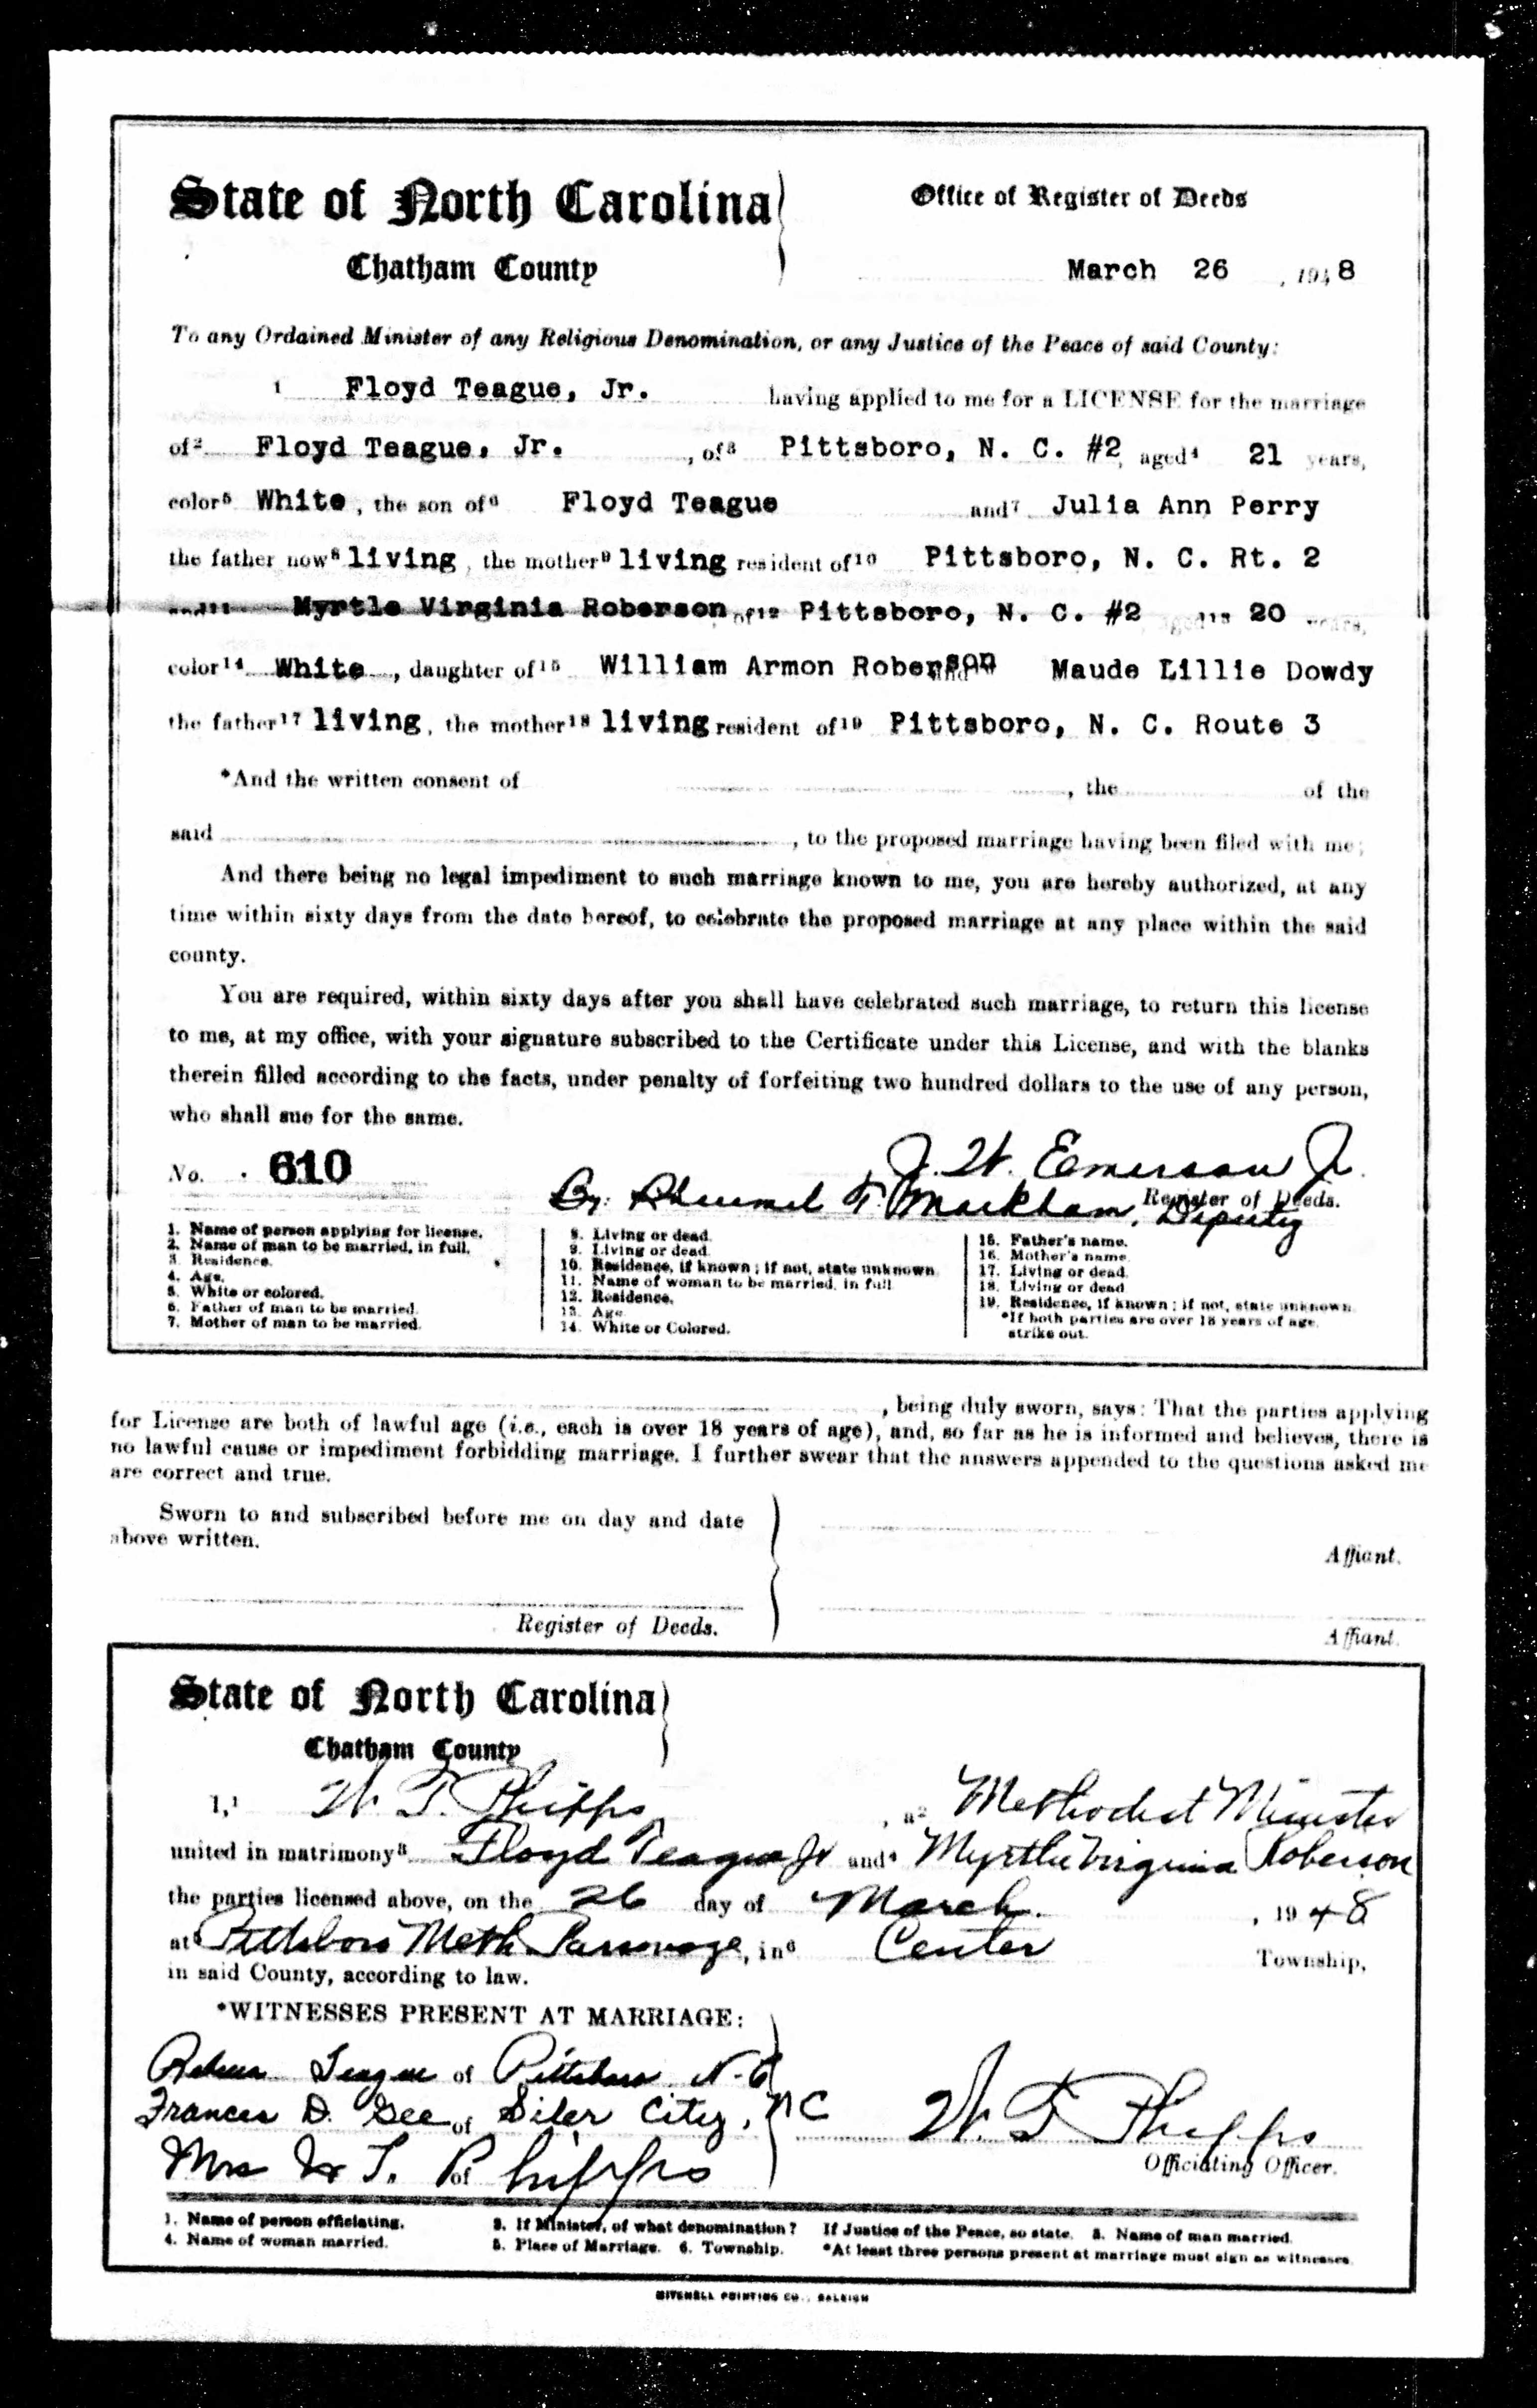 State of North Carolina
Office of Register of Deeds
Chatham County
March 26, 1948
To any Ordained Minister of any Religious Denomination, or any Justice of the Peace of said County:
1 Floyd Teague, Jr. having applied to me for a LICENSE for the marriage
of2 Floyd Teague, Jr., of3 Pittsboro, N. C. #2, aged4 21 years,
color5 White, the son of6 Floyd Teague and7 Julia Ann Perry
the father now8 living, the mother9 living resident of10 Pittsboro, N. C. Rt. 2
and11 Myrtle Virginia Roberson of12 Pittsboro, N. C. #2 aged13 20 years,
color14 White, daughter of15 William Armon Roberson and Maude Lillie Dowdy
the father17 living, the mother18 living resident of19 Pittsboro, N. C. Route 3
*And the written consent of , the of the
said , to the proposed marriage having been filed with me;
And there being no legal impediment to such marriage known to me, you are hereby authorized, at any
time within sixty days from the date hereof, to celebrate the proposed marriage at any place within the said
county.
You are required, within sixty days after you shall have celebrated such marriage, to return this license
to me, at my office, with your signature subscribed to the Certificate under this License, and with the blanks
therein filled according to the facts, under penalty of forfeiting two hundred dollars to the use of any person,
who shall sue for the same.
No. 610
J. W. Emerson Jr.
Register of Deeds.
By: F. Markham, Deputy
1. Name of person applying for license.
2. Name of man to be married, in full.
3. Residence.
4. Age.
5. White or colored.
6. Father of man to be married.
7. Mother of man to be married.
8. Living or dead.
9. Living or dead.
10. Residence, if known; if not, state unknown.
11. Name of woman to be married, in full.
12. Residence.
13. Age.
14. White or Colored.
15. Father's name.
16. Mother's name.
17. Living or dead.
18. Living or dead.
19. Residence, if known; if not, state unknown.
*If both parties are over 18 years of age,
strike out.
, being duly sworn, says: That the parties applying
for License are both of lawful age (i.e., each is over 18 years of age), and, so far as he is informed and believes, there is
no lawful cause or impediment forbidding marriage. I further swear that the answers appended to the questions asked me
are correct and true.
Sworn to and subscribed before me on day and date
above written.
Affiant.
Register of Deeds.
Affiant.
State of North Carolina
Chatham County
I,1 W. T. Phipps, a2 Methodist Minister
united in matrimony3 Floyd Teague Jr and4 Myrtle Virginia Roberson
the parties licensed above, on the 26 day of March, 1948
at5 Pittsboro Meth. Parsonage, in6 Center Township,
in said County, according to law.
*WITNESSES PRESENT AT MARRIAGE:
Teague of Pittsboro N.C
Frances D. Gee of Siler City, NC
Mrs W T. Phipps of
W. T. Phipps
Officiating Officer.
1. Name of person officiating. 2. If Minister, of what denomination? If Justice of the Peace, so state. 3. Name of man married.
4. Name of woman married. 5. Place of Marriage. 6. Township. *At least three persons present at marriage must sign as witnesses.
MITCHELL PRINTING CO., RALEIGH